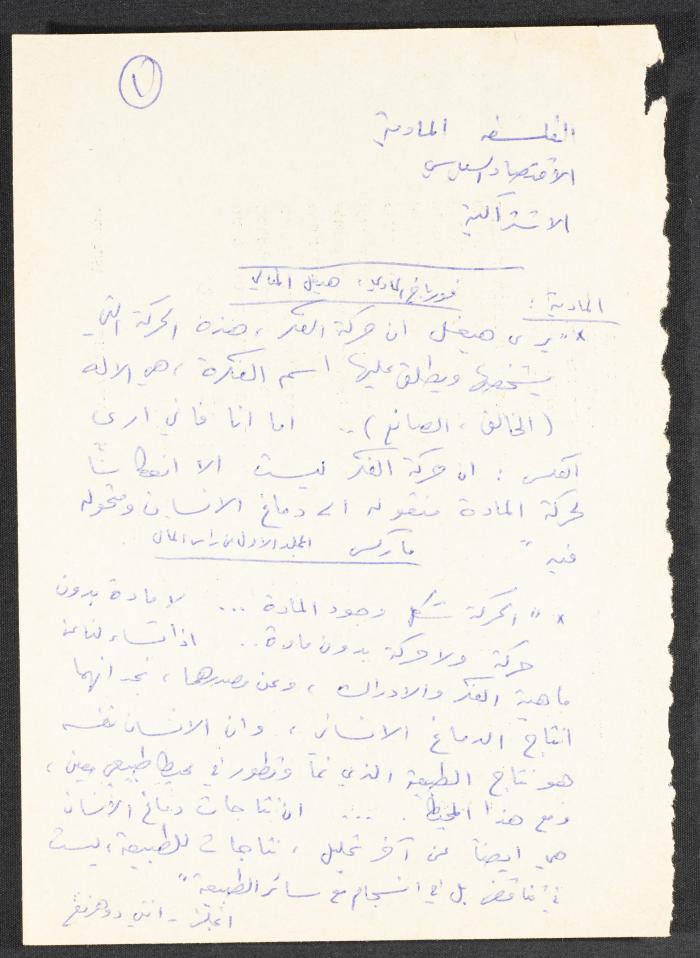 ٧
الفلسفه المادية
الاقتصاد السياسي
الاشتراكية
فورباخ المادي، هيغل المثالي
المادية:
* "يرى هيغل ان حركة الفكر، هذه الحركة التي
يشخصها ويطلق عليها اسم الفكرة، هي الاله
(الخالق، الصانع).. اما انا فاني ارى
العكس: ان حركة الفكر ليست الا انعكاسًا
لحركة المادة منقوله الى دماغ الانسان ومتحوله
فيه" ماركس المجلد الاول من راس المال
* "الحركة شكل وجود المادة ... لا مادة بدون
حركة ولا حركة بدون مادة.. اذا تساءلنا عن
ماهية الفكر والادراك، وعن مصدرهما، نجد انهما
انتاج الدماغ الانساني، وان الانسان نفسه
هو نتاج الطبيعة الذي نما وتطور في محيط طبيعي معين،
ومع هذا المحيط. .... ان نتاجات دماغ الانسان
هي ايضا عن آخر تحليل، نتاجات للطبيعة، ليست
في تناقض بل في انسجام مع سائر الطبيعة"
انجلز - انتي دوهرنغ